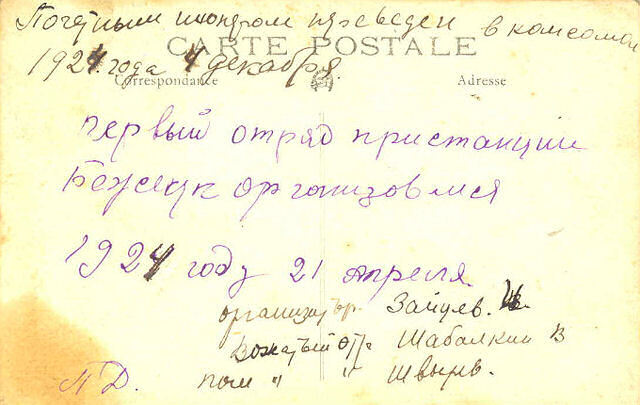 Почётным пионером преведен в комсомол
CARTE POSTALE
1924 года 4 декабря.
Correspondance
Adresse
первый отряд пристанции
Бежецк организовался
1924 году 21 апреля.
организатор. Зайцев. И.
Вожатый отр. Шабалкин В
пом " " Швырв.